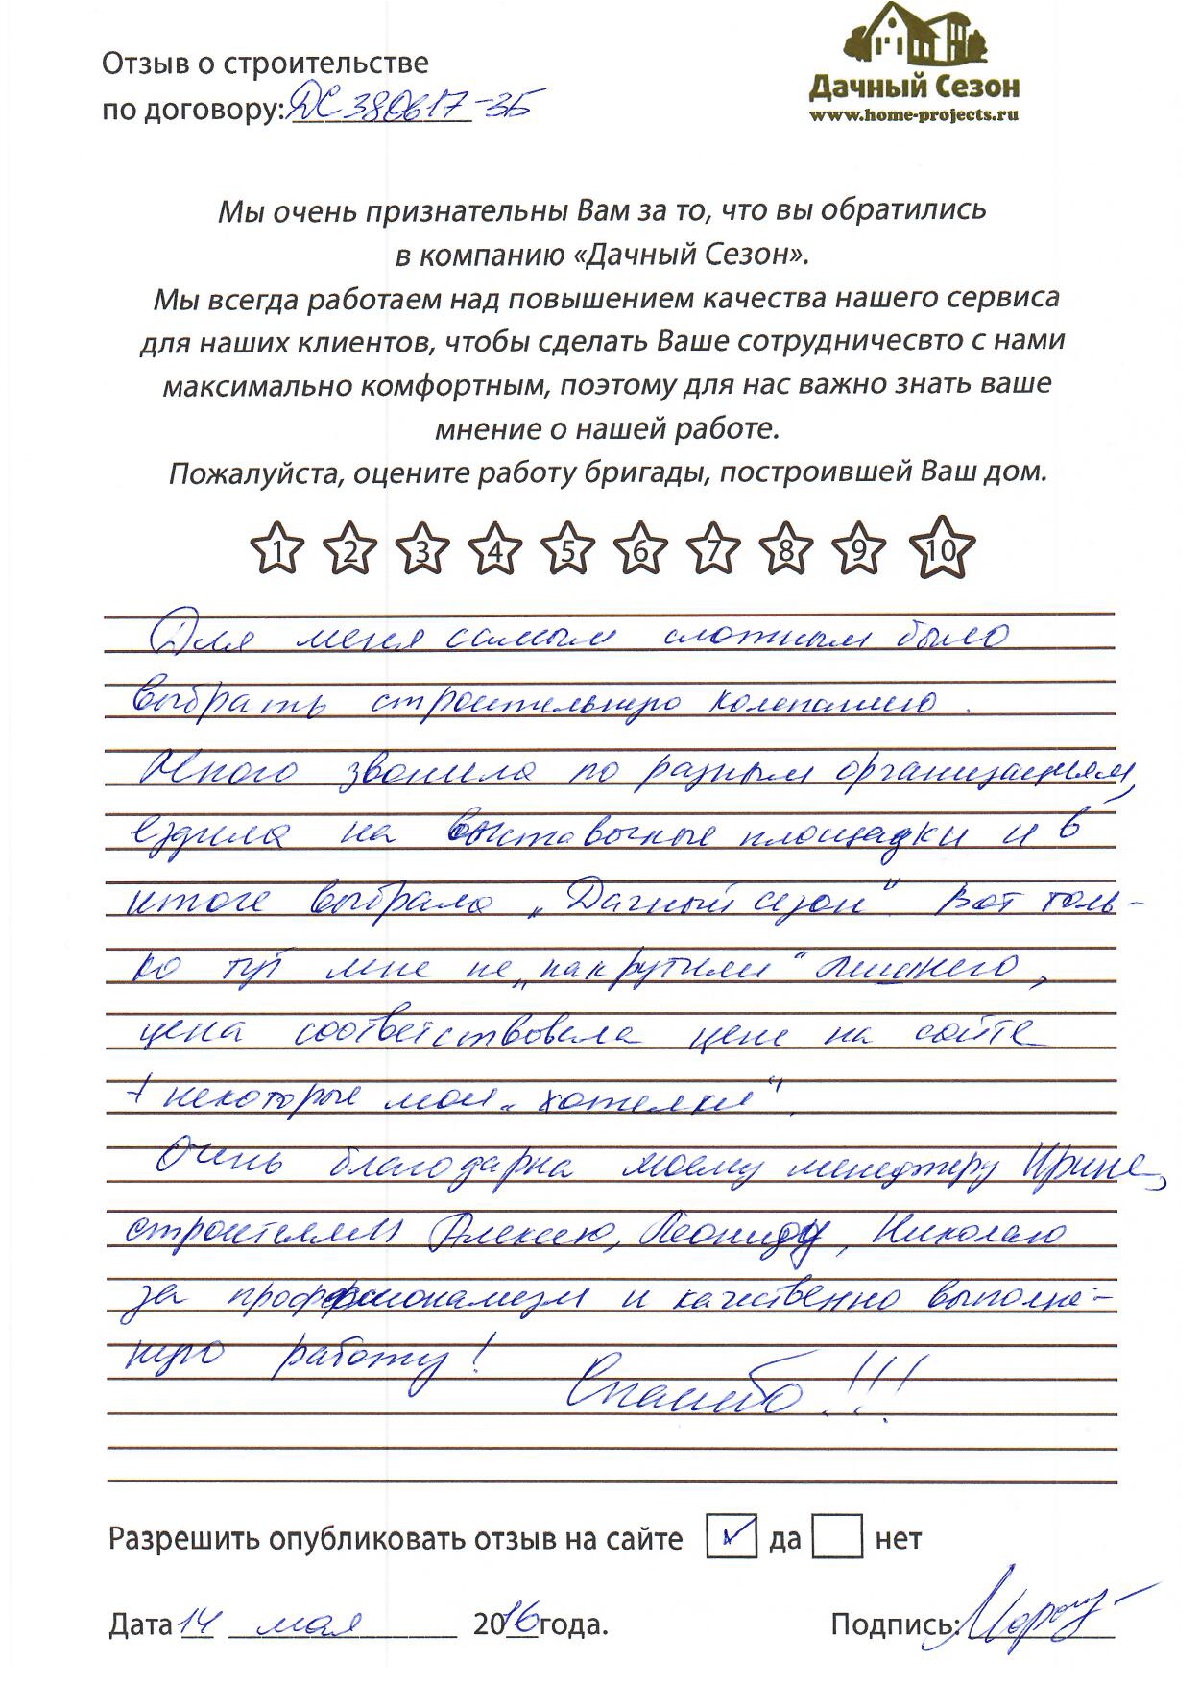 Отзыв о строительстве
по договору: ДС380617-ЗБ
Дачный Сезон
www.home-projects.ru
Мы очень признательны Вам за то, что вы обратились
в компанию «Дачный Сезон».
Мы всегда работаем над повышением качества нашего сервиса
для наших клиентов, чтобы сделать Ваше сотрудничесвто с нами
максимально комфортным, поэтому для нас важно знать ваше
мнение о нашей работе.
Пожалуйста, оцените работу бригады, построившей Ваш дом.
1 2 3 4 5 6 7 8 9 10
Для меня самым сложным было
выбрать строительную компанию.
Много звонила по разным организациям,
ездила на выставочные площадки и в
итоге выбрала „Дачный сезон“. Вот толь-
ко тут мне не „накрутили“ лишнего,
цена соответствовала цене на сайте
+ некоторые мои „хотелки“.
Очень благодарна моему менеджеру Ирине,
строителям Алексею, Леониду, Николаю
за профессионализм и качественно выполне-
ную работу!
Спасибо!!!
Разрешить опубликовать отзыв на сайте да нет
Дата 14 мая 2016 года. Подпись: